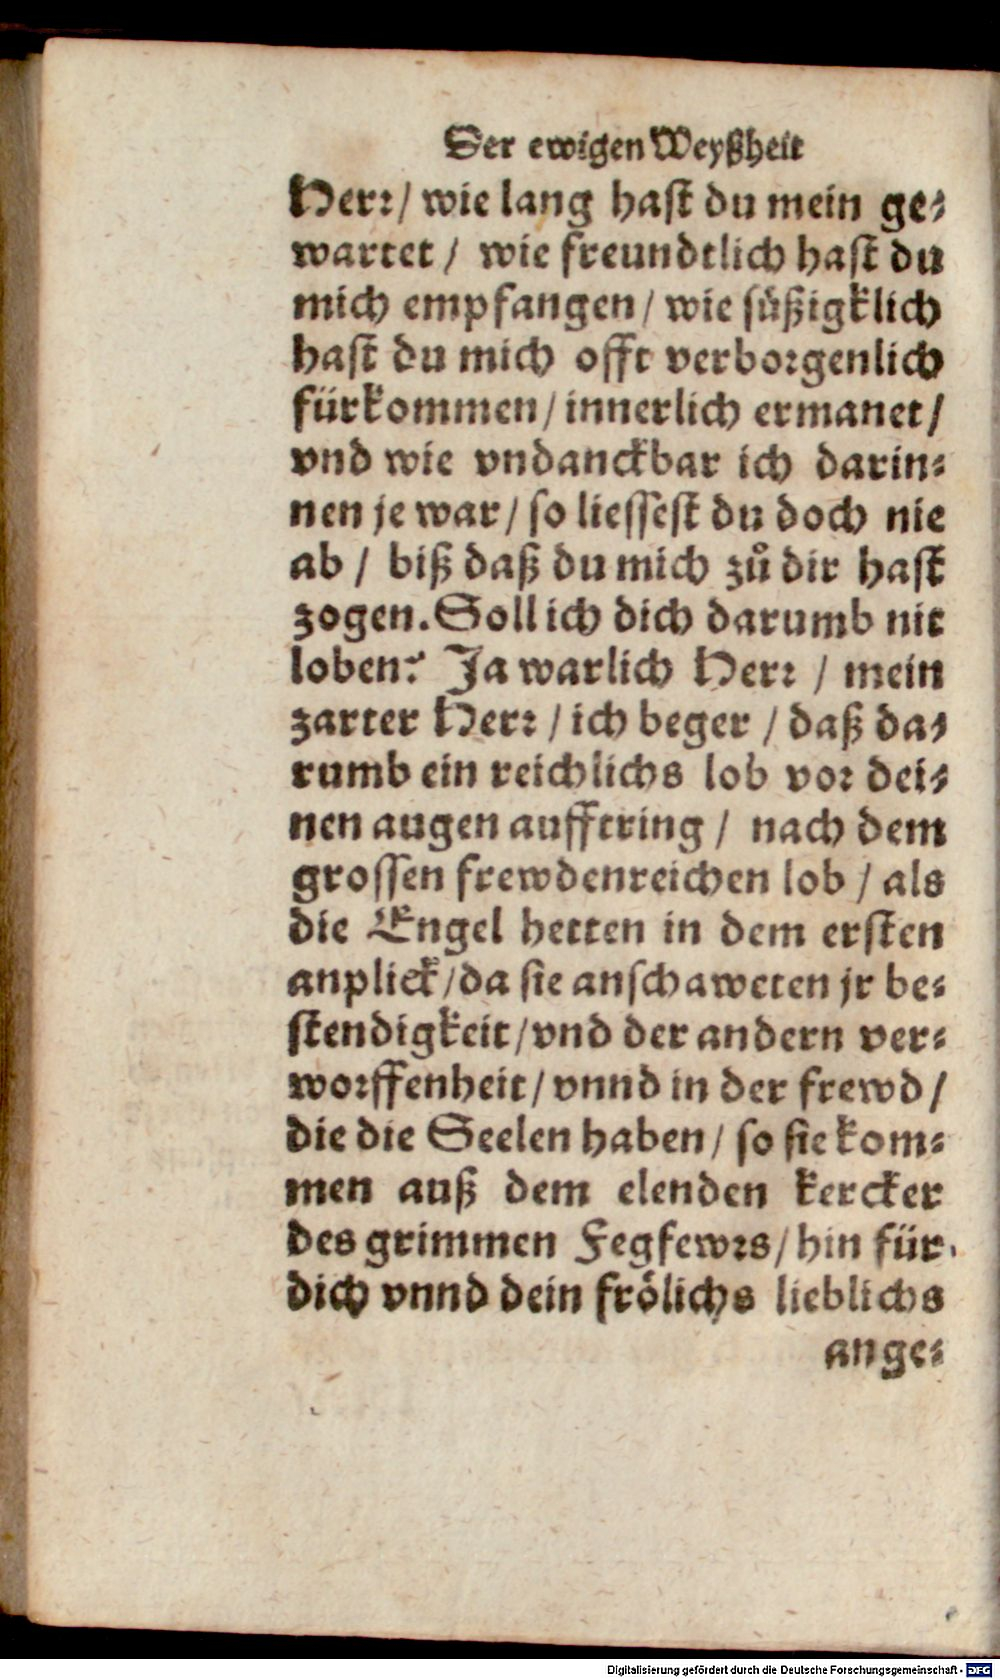 Der ewigen Weyßheit
Herr/ wie lang hast du mein ge-
wartet / wie freundtlich hast du
mich empfangen/ wie süßigklich
hast du mich offt verborgenlich
fürkommen/ innerlich ermanet/
vnd wie vndanckbar ich darin-
nen je war/ so liessest du doch nie
ab / biß daß du mich zuͦ dir hast
zogen. Soll ich dich darumb nit
loben? Ja warlich Herr / mein
zarter Herr / ich beger / daß da-
rumb ein reichlichs lob vor dei-
nen augen aufftring / nach dem
grossen frewdenreichen lob / als
die Engel hetten in dem ersten
anplick/ da sie anschaweten jr be-
stendigkeit/ vnd der andern ver-
worffenheit/ vnnd in der frewd /
die die Seelen haben/ so sie kom-
men auß dem elenden kercker
des grimmen Fegfewrs/ hin für
dich vnnd dein froͤlichs lieblichs
ange-
Digitalisierung gefördert durch die Deutsche Forschungsgemeinschaft - DFG